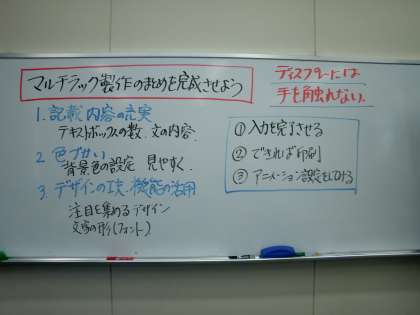 マルチラック製作のまとめを完成させよう
ディスプレーには
手を触れない。
1. 記載内容の充実
テキストボックスの数、文の内容
2. 色づかい
背景色の設定 見やすく
3. デザインの工夫、機能の活用
注目を集めるデザイン
文字の形(フォント)
① 入力を完了させる
② できれば印刷
③ アニメーション設定をしてみる